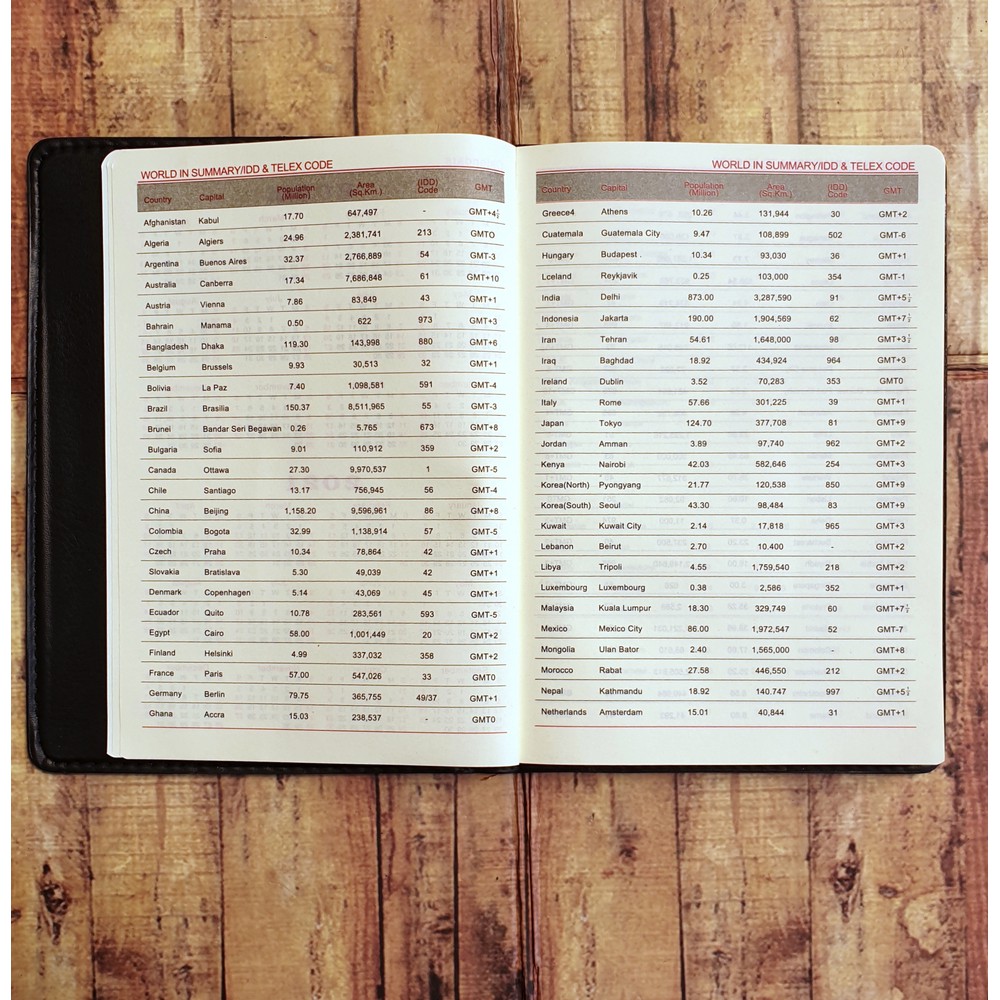 WORLD IN SUMMARY/IDD & TELEX CODE
Country Capital Population (Million) Area (Sq.Km.) (IDD) Code GMT
Afghanistan Kabul 17.70 647,497 - GMT+4½
Algeria Algiers 24.96 2,381,741 213 GMTO
Argentina Buenos Aires 32.37 2,766,889 54 GMT-3
Australia Canberra 17.34 7,686,848 61 GMT+10
Austria Vienna 7.86 83,849 43 GMT+1
Bahrain Manama 0.50 622 973 GMT+3
Bangladesh Dhaka 119.30 143,998 880 GMT+6
Belgium Brussels 9.93 30,513 32 GMT+1
Bolivia La Paz 7.40 1,098,581 591 GMT-4
Brazil Brasilia 150.37 8,511,965 55 GMT-3
Brunei Bandar Seri Begawan 0.26 5.765 673 GMT+8
Bulgaria Sofia 9.01 110,912 359 GMT+2
Canada Ottawa 27.30 9,970,537 1 GMT-5
Chile Santiago 13.17 756,945 56 GMT-4
China Beijing 1,158.20 9,596,961 86 GMT+8
Colombia Bogota 32.99 1,138,914 57 GMT-5
Czech Praha 10.34 78,864 42 GMT+1
Slovakia Bratislava 5.30 49,039 42 GMT+1
Denmark Copenhagen 5.14 43,069 45 GMT+1
Ecuador Quito 10.78 283,561 593 GMT-5
Egypt Cairo 58.00 1,001,449 20 GMT+2
Finland Helsinki 4.99 337,032 358 GMT+2
France Paris 57.00 547,026 33 GMT0
Germany Berlin 79.75 365,755 49/37 GMT+1
Ghana Accra 15.03 238,537 - GMT0
WORLD IN SUMMARY/IDD & TELEX CODE
Country Capital Population (Million) Area (Sq.Km.) (IDD) Code GMT
Greece4 Athens 10.26 131,944 30 GMT+2
Cuatemala Guatemala City 9.47 108,899 502 GMT-6
Hungary Budapest . 10.34 93,030 36 GMT+1
Lceland Reykjavik 0.25 103,000 354 GMT-1
India Delhi 873.00 3,287,590 91 GMT+5½
Indonesia Jakarta 190.00 1,904,569 62 GMT+7½
Iran Tehran 54.61 1,648,000 98 GMT+3½
Iraq Baghdad 18.92 434,924 964 GMT+3
Ireland Dublin 3.52 70,283 353 GMT0
Italy Rome 57.66 301,225 39 GMT+1
Japan Tokyo 124.70 377,708 81 GMT+9
Jordan Amman 3.89 97,740 962 GMT+2
Kenya Nairobi 42.03 582,646 254 GMT+3
Korea(North) Pyongyang 21.77 120,538 850 GMT+9
Korea(South) Seoul 43.30 98,484 83 GMT+9
Kuwait Kuwait City 2.14 17,818 965 GMT+3
Lebanon Beirut 2.70 10.400 - GMT+2
Libya Tripoli 4.55 1,759,540 218 GMT+2
Luxembourg Luxembourg 0.38 2,586 352 GMT+1
Malaysia Kuala Lumpur 18.30 329,749 60 GMT+7½
Mexico Mexico City 86.00 1,972,547 52 GMT-7
Mongolia Ulan Bator 2.40 1,565,000 - GMT+8
Morocco Rabat 27.58 446,550 212 GMT+2
Nepal Kathmandu 18.92 140.747 997 GMT+5½
Netherlands Amsterdam 15.01 40,844 31 GMT+1